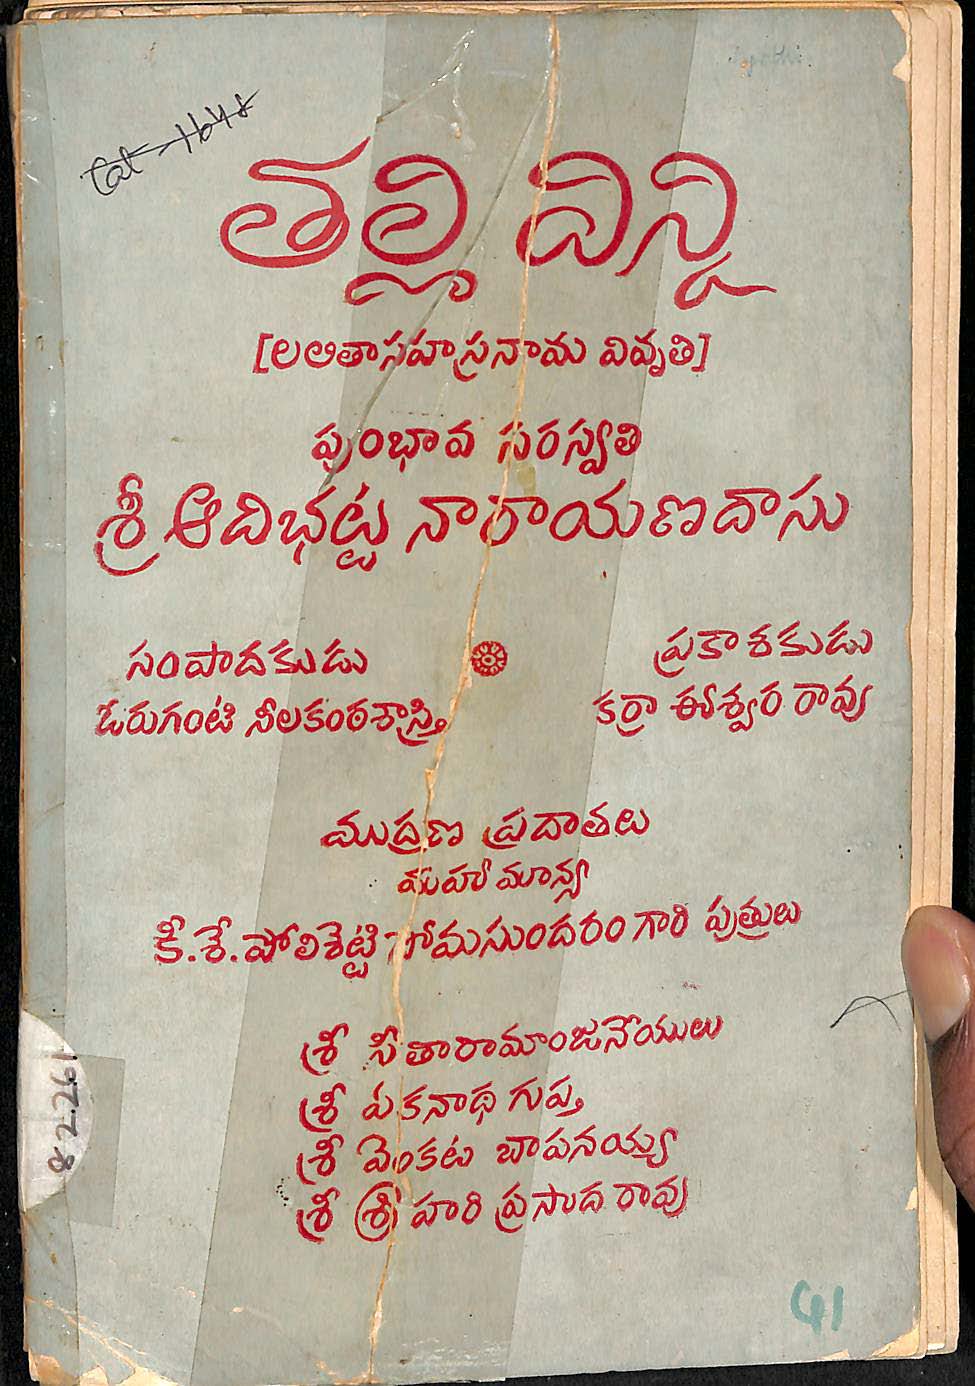 Cat-1648
తల్లి విన్కి
[లలితాసహస్రనామ వివృతి]
పుంభావ సరస్వతి
శ్రీ ఆదిభట్ట నారాయణదాసు
సంపాదకుడు
ఓరుగంటి నీలకంఠశాస్త్రి
ప్రకాశకుడు
కర్రా ఈశ్వర రావు
ముద్రణ ప్రదాతలు
మహామాన్య
కీ.శే.పోలిశెట్టి సోమసుందరంగారి పుత్రులు
శ్రీ సీతారామాంజనేయులు
శ్రీ ఏకనాథ గుప్త
శ్రీ వెంకట బాపనయ్య
శ్రీ శ్రీహరి ప్రసాద రావు